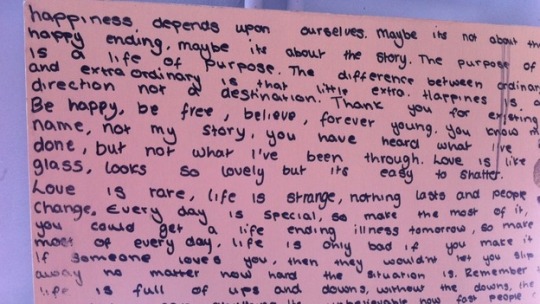 happiness depends upon ourselves. Maybe its not about the
happy ending, maybe its about the story. The purpose of
is a life of purpose. The difference between ordinary
and extraordinary is that little extra. Happiness is a
direction not a destination. Thank you for existing
Be happy, be free, believe, forever young. you know m
name, not my story, you have heard what I've
done, but not what I've been through. Love is like
glass, looks so lovely but its easy to shatter.
Love is rare, life is strange, nothing lasts and people
change. Every day is special, so make the most of it,
you could get a life ending illness tomorrow, so make
most of every day. life is only bad if you make it
If someone loves you, then they wouldnt let you slip
away no matter how hard the situation is. Remember
life is full of ups and downs, without the downs, the
how fast people